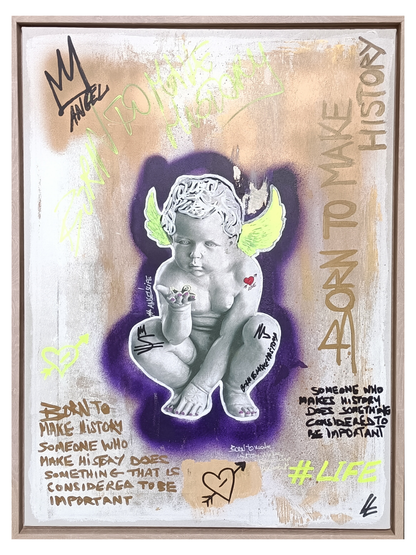 ANGEL
BORN TO MAKE
HISTORY
BORN TO MAKE
HISTORY
BORN TO
MAKE HISTORY
SOMEONE WHO
MAKE HISTORY DOES
SOMETHING THAT IS
CONSIDERED TO BE
IMPORTANT
SOMEONE WHO
MAKES HISTORY
DOES SOMETHING
CONSIDERED TO
BE IMPORTANT
#LIFE